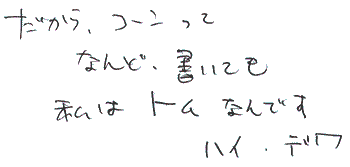 だから、コーンって
なんど、書いても
私は トム なんです
ハイ．デワ